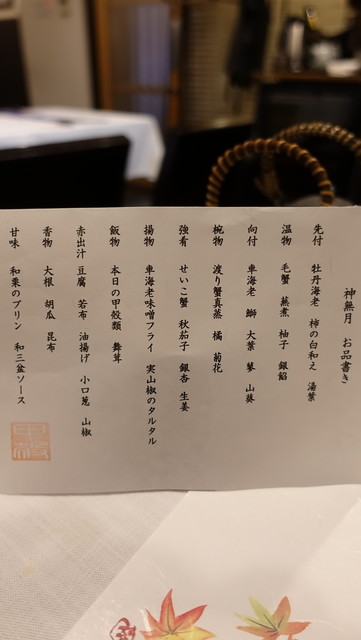 神無月　お品書き
先付　牡丹海老　柿の白和え　湯葉
温物　毛蟹　蕪煮　柚子　銀餡
向付　車海老　鰤　大葉　蓼　山葵
椀物　渡り蟹真蒸　橘　菊花
強肴　せいこ蟹　秋茄子　銀杏　生姜
揚物　車海老味噌フライ　実山椒のタルタル
飯物　本日の甲殻類　舞茸
赤出汁　豆腐　若布　油揚げ　小口葱　山椒
香物　大根　胡瓜　昆布
甘味　和栗のプリン　和三盆ソース